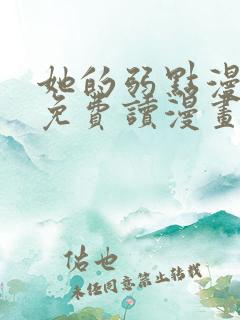 她的弱點漫
免費讀漫畫
佑也
未经同意禁止转载